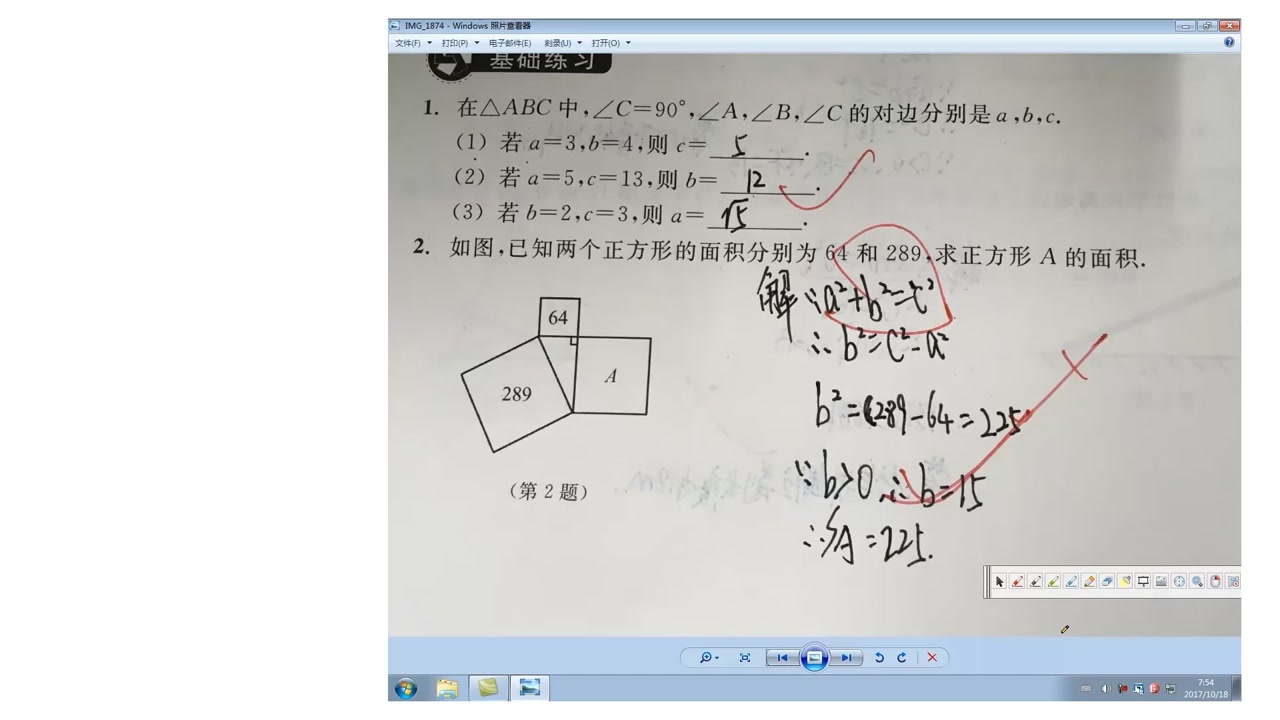 IMG_1874 - Windows 照片查看器
文件(F) 打印(P) 电子邮件(E) 刻录(U) 打开(O)
基础练习
1. 在△ABC 中,∠C=90°,∠A,∠B,∠C 的对边分别是 a,b,c.
(1) 若 a=3,b=4,则 c= 5 .
(2) 若 a=5,c=13,则 b= 12 .
(3) 若 b=2,c=3,则 a= √5 .
2. 如图,已知两个正方形的面积分别为 64 和 289,求正方形 A 的面积.
解 ∵a²+b²=c²
∴b²=c²-a²
b²=289-64=225
∵b>0 ∴b=15
∴SA=225.
64
289
A
(第 2 题)
7:54
2017/10/18